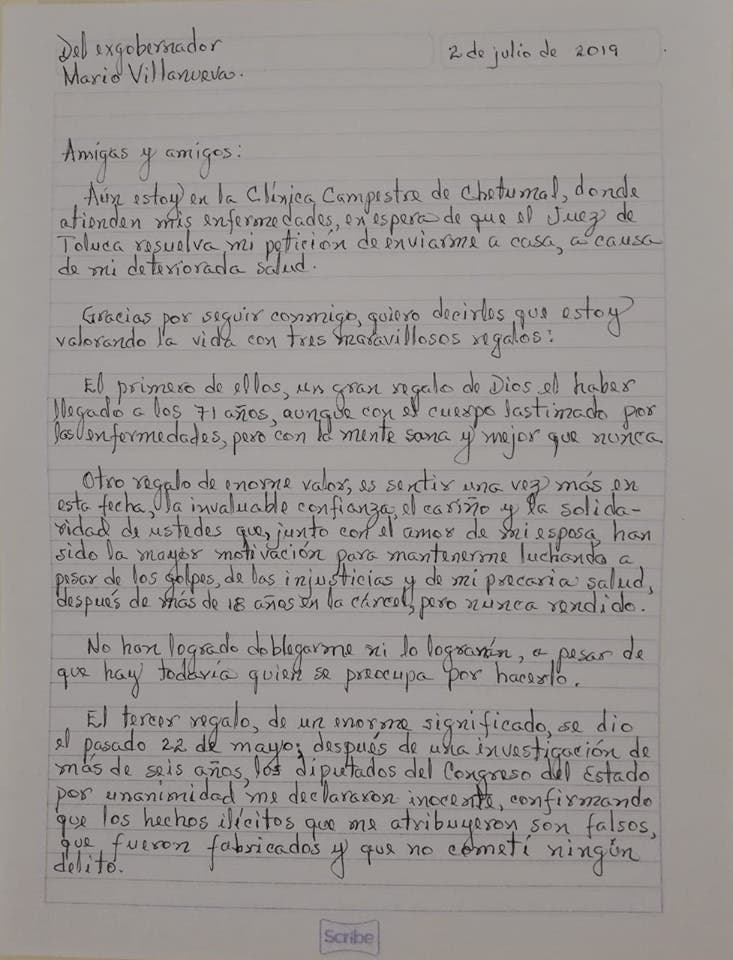 Del exgobernador
Mario Villanueva.
2 de julio de 2019
Amigas y amigos:
Aún estoy en la Clínica Campestre de Chetumal, donde
atienden mis enfermedades, en espera de que el Juez de
Toluca resuelva mi petición de enviarme a casa, a causa
de mi deteriorada salud.
Gracias por seguir conmigo, quiero decirles que estoy
valorando la vida con tres maravillosos regalos:
El primero de ellos, un gran regalo de Dios el haber
llegado a los 71 años, aunque con el cuerpo lastimado por
las enfermedades, pero con la mente sana y mejor que nunca
Otro regalo de enorme valor, es sentir una vez más en
esta fecha, la invaluable confianza, el cariño y la solida-
ridad de ustedes que, junto con el amor de mi esposa, han
sido la mayor motivación para mantenerme luchando a
pesar de los golpes, de las injusticias y de mi precaria salud,
después de más de 18 años en la cárcel, pero nunca rendido.
No han logrado doblegarme ni lo lograrán, a pesar de
que hay todavía quien se preocupa por hacerlo.
El tercer regalo, de un enorme significado, se dio
el pasado 22 de mayo; después de una investigación de
más de seis años, los diputados del Congreso del Estado
por unanimidad me declararon inocente, confirmando
que los hechos ilícitos que me atribuyeron son falsos,
que fueron fabricados y que no cometí ningún
delito.
Scribe